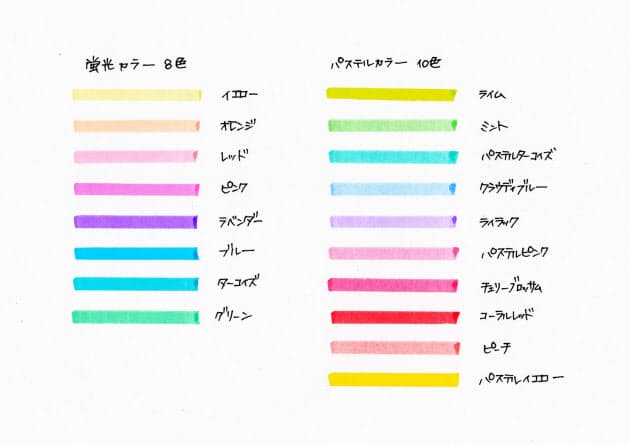 蛍光カラー 8色
イエロー
オレンジ
レッド
ピンク
ラベンダー
ブルー
ターコイズ
グリーン
パステルカラー 10色
ライム
ミント
パステルターコイズ
クラウディブルー
ライラック
パステルピンク
チェリーブロッサム
コーラルレッド
ピーチ
パステルイエロー